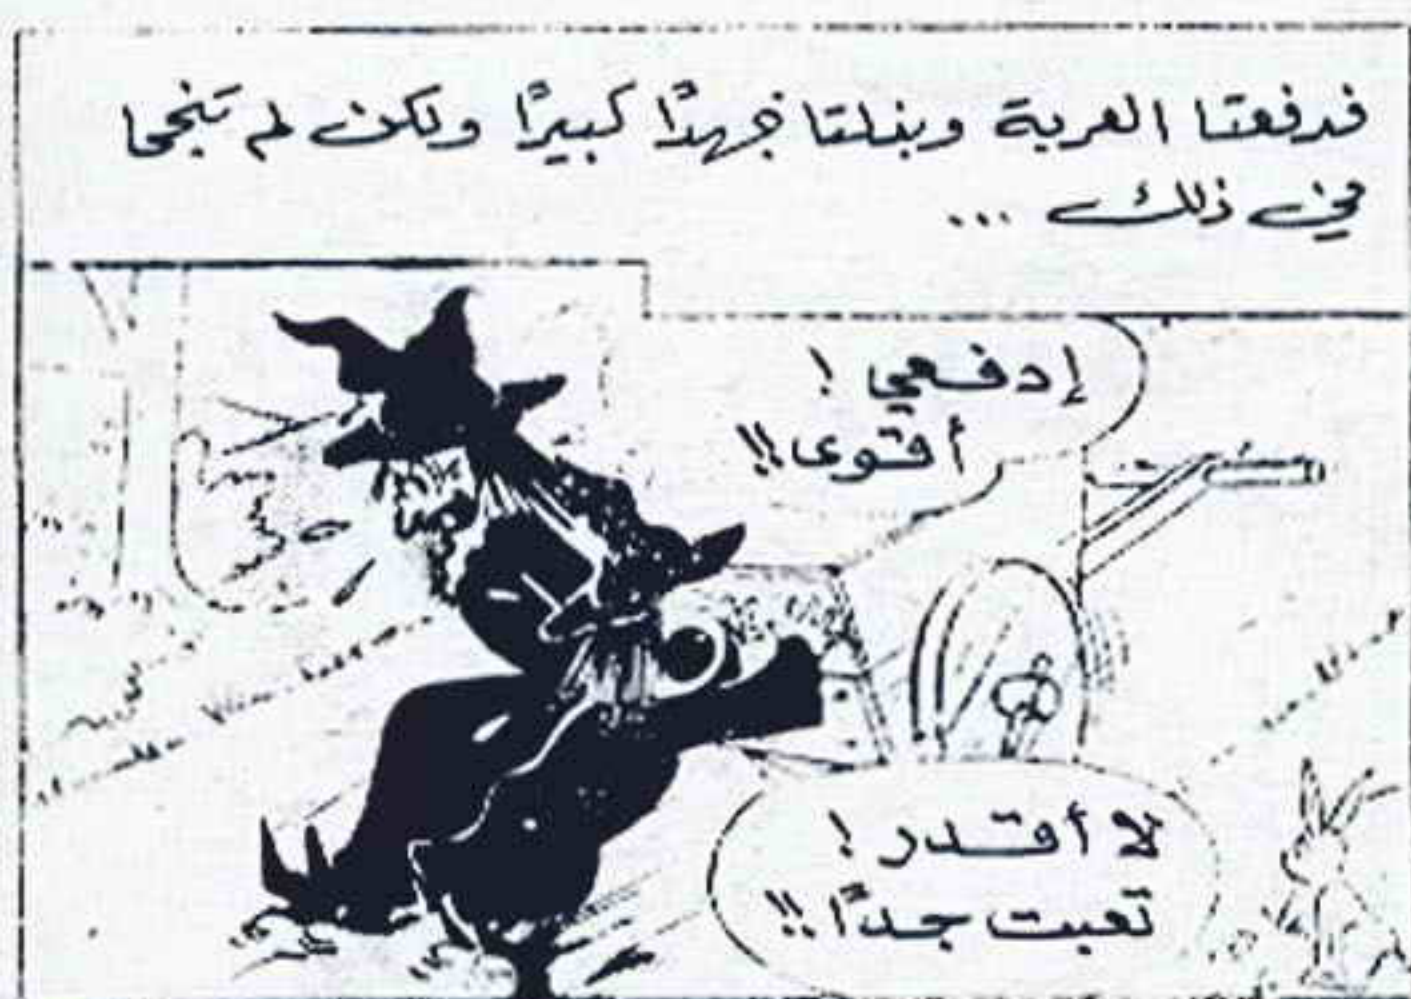 فدفعتا العربة وبذلتا جهدًا كبيرًا ولكن لم تنجحا
في ذلك ...
إدفعي !
أقوى !!
لا أقدر !
تعبت جدًا !!